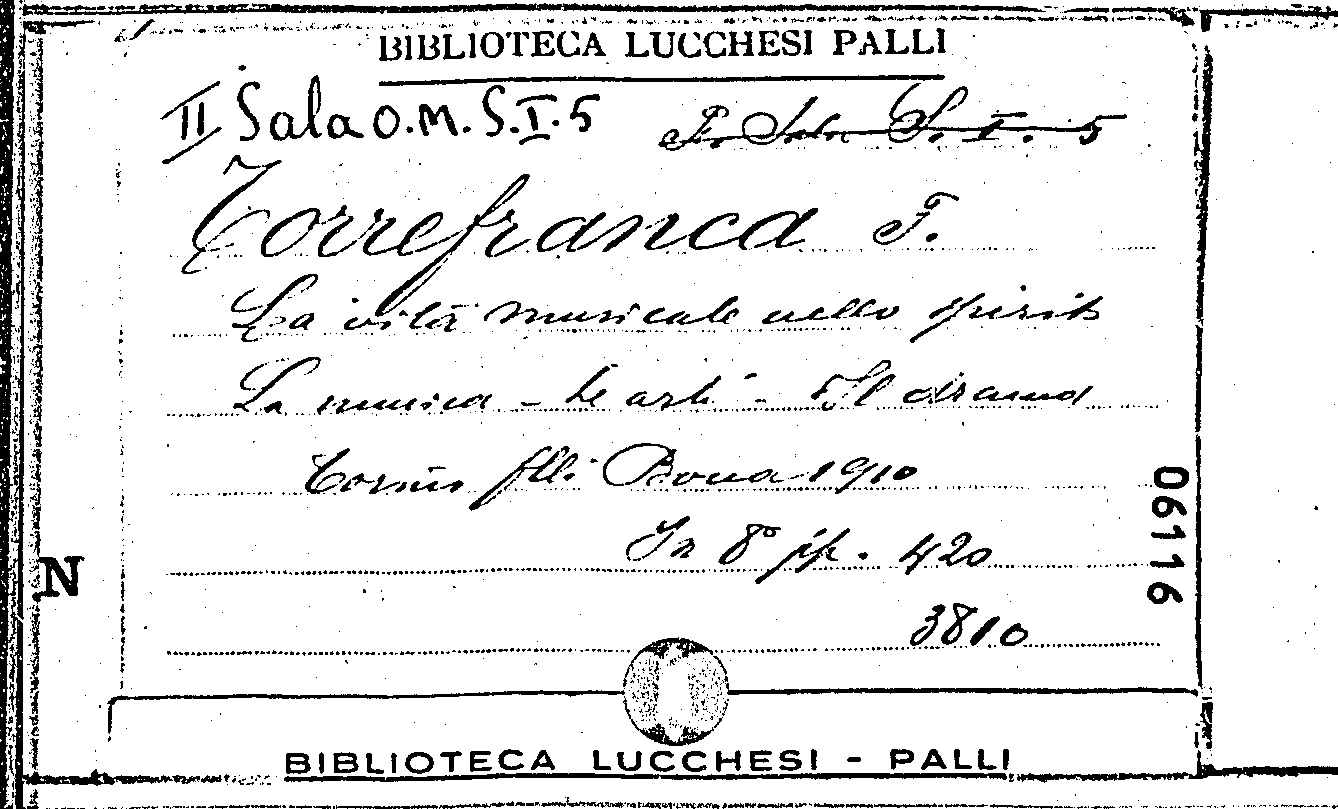 BIBLIOTECA LUCCHESI PALLI
II Sala O.M. S.I.5 Sala S. I. 5
Torrefranca F.
La vita musicale nello spirito
La musica - Le arti - Il drama
Torino flli Bocca 1910
In 8° pp. 420
3810
06116
N
BIBLIOTECA LUCCHESI - PALLI